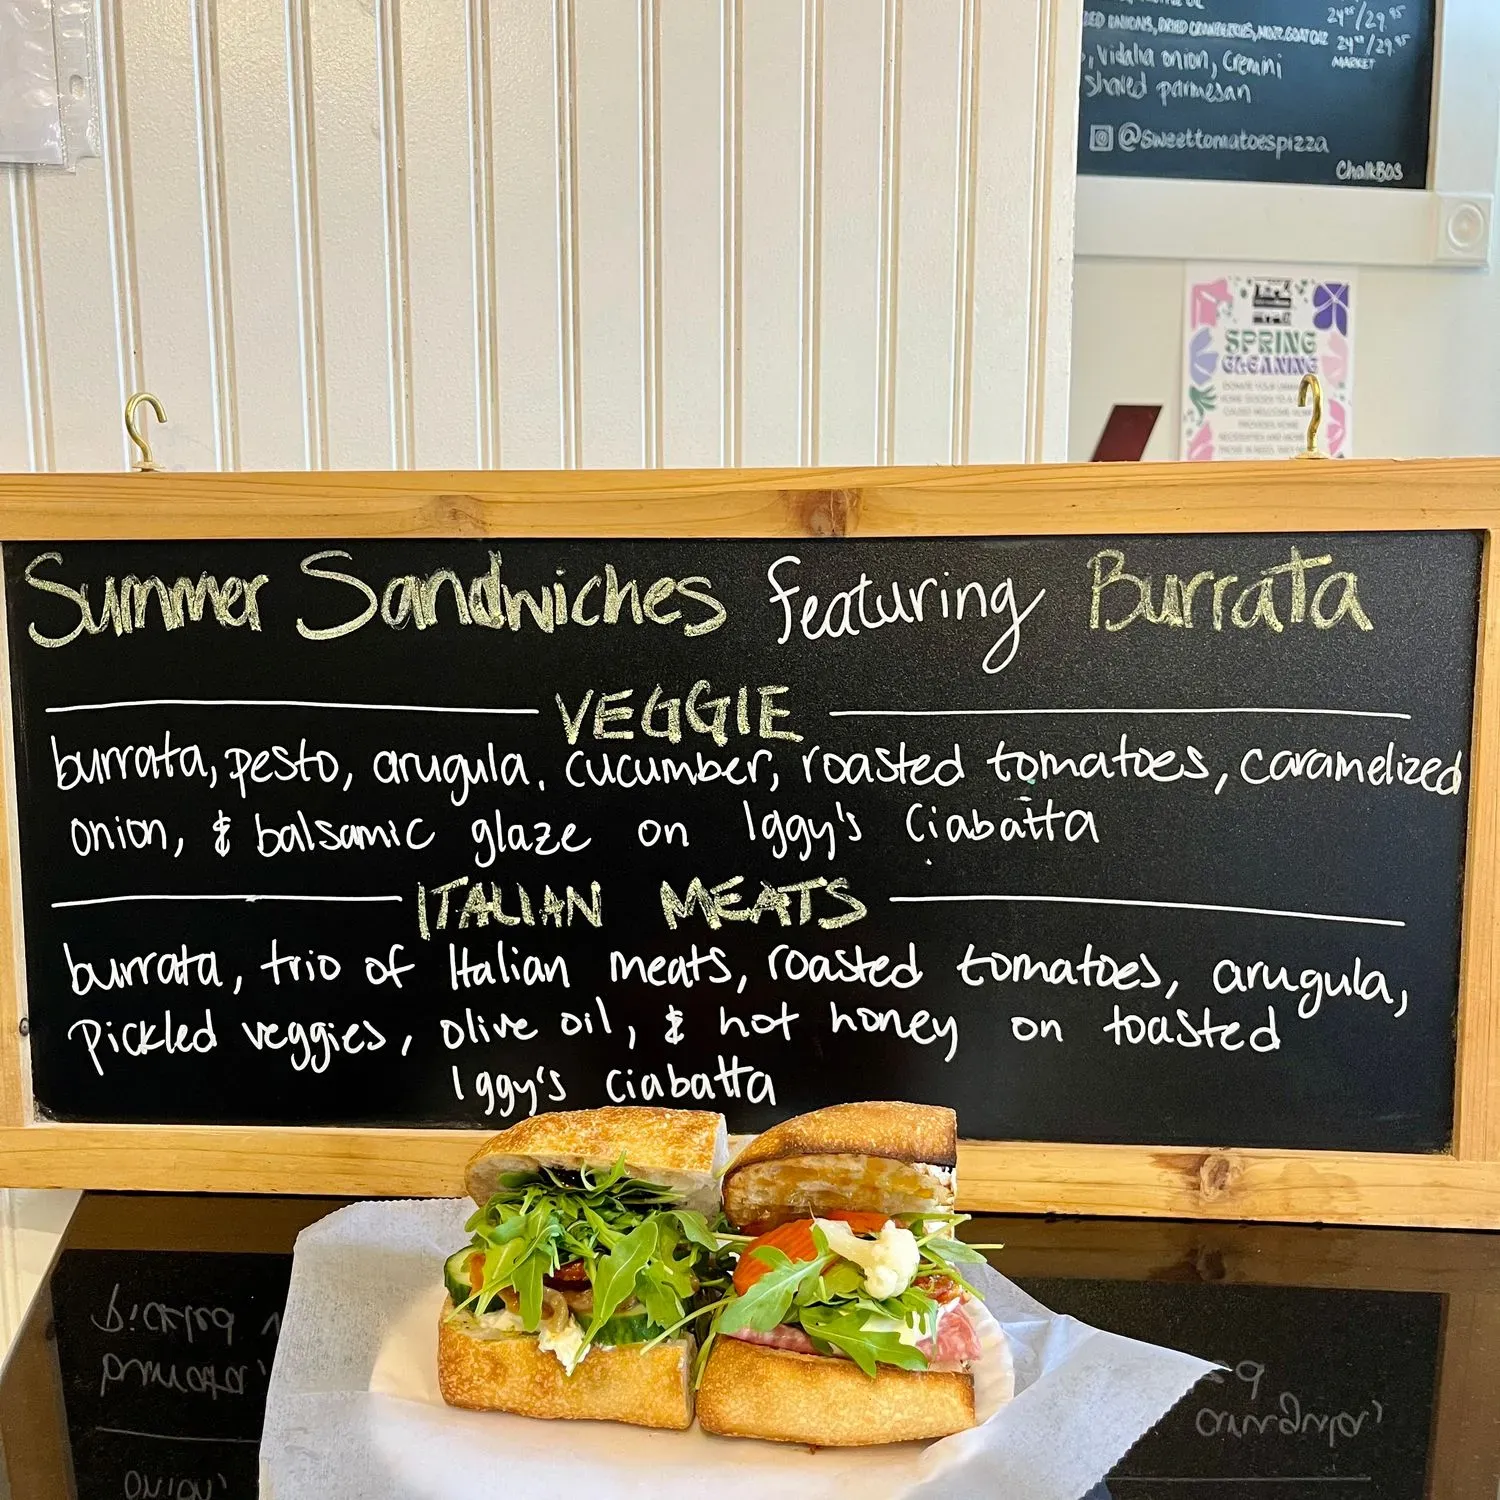 24⁹⁵/29.⁹⁵
ED ONIONS, DRIED CRANBERRIES, MOZZ, GOAT CHZ 24⁹⁵/29.⁹⁵
, Vidalia onion, Cremini MARKET
shaved parmesan
@sweettomatoespizza
ChalkBOS
SPRING
CLEANING
Summer Sandwiches featuring Burrata
VEGGIE
burrata, pesto, arugula, cucumber, roasted tomatoes, caramelized
onion, & balsamic glaze on Iggy's Ciabatta
ITALIAN MEATS
burrata, trio of Italian meats, roasted tomatoes, arugula,
Pickled veggies, olive oil, & hot honey on toasted
Iggy's ciabatta